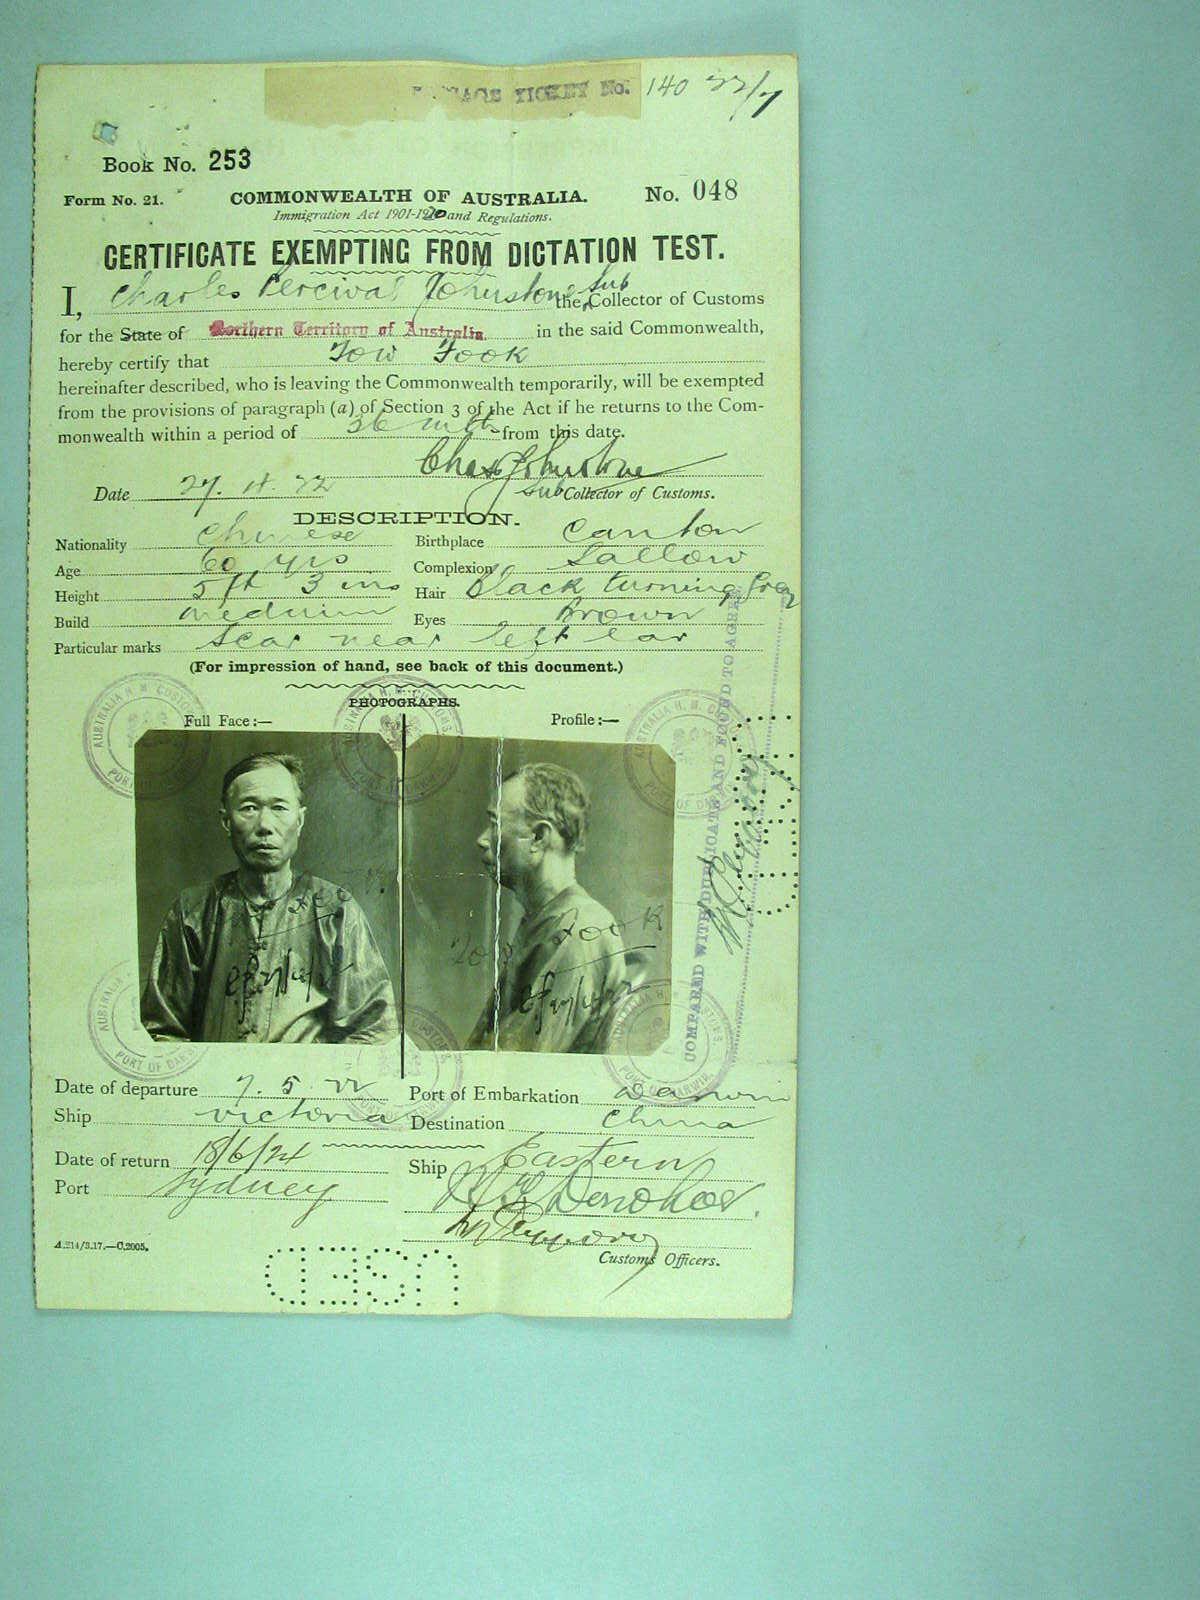 PASSAGE TICKET No. 140 22/7
Book No. 253
Form No. 21. COMMONWEALTH OF AUSTRALIA. No. 048
Immigration Act 1901-1920 and Regulations.
CERTIFICATE EXEMPTING FROM DICTATION TEST.
I, Charles Percival Johnstone the Sub Collector of Customs
for the State of Northern Territory of Australia. in the said Commonwealth,
hereby certify that Fow Fook
hereinafter described, who is leaving the Commonwealth temporarily, will be exempted
from the provisions of paragraph (a) of Section 3 of the Act if he returns to the Com-
monwealth within a period of 36 mths from this date.
Chas Johnstone
Date 27. 4. 22 Sub Collector of Customs.
DESCRIPTION.
Nationality Chinese Birthplace Canton
Age 60 yrs Complexion Sallow
Height 5 ft 3 ins Hair Black turning Grey
Build medium Eyes Brown
Particular marks Scar near left ear
(For impression of hand, see back of this document.)
PHOTOGRAPHS.
Full Face:— Profile:—
AUSTRALIA H. M. CUSTOMS.
PORT OF DARWIN
COMPARED WITH DUPLICATE AND FOUND TO AGREE
Fow Fook
Date of departure 7. 5. 22 Port of Embarkation Darwin
Ship Victoria Destination China
Date of return 18/6/24 Ship Eastern
Port Sydney
Donohoe.
A.214/3.17.—C.2005.
Customs Officers.
USED